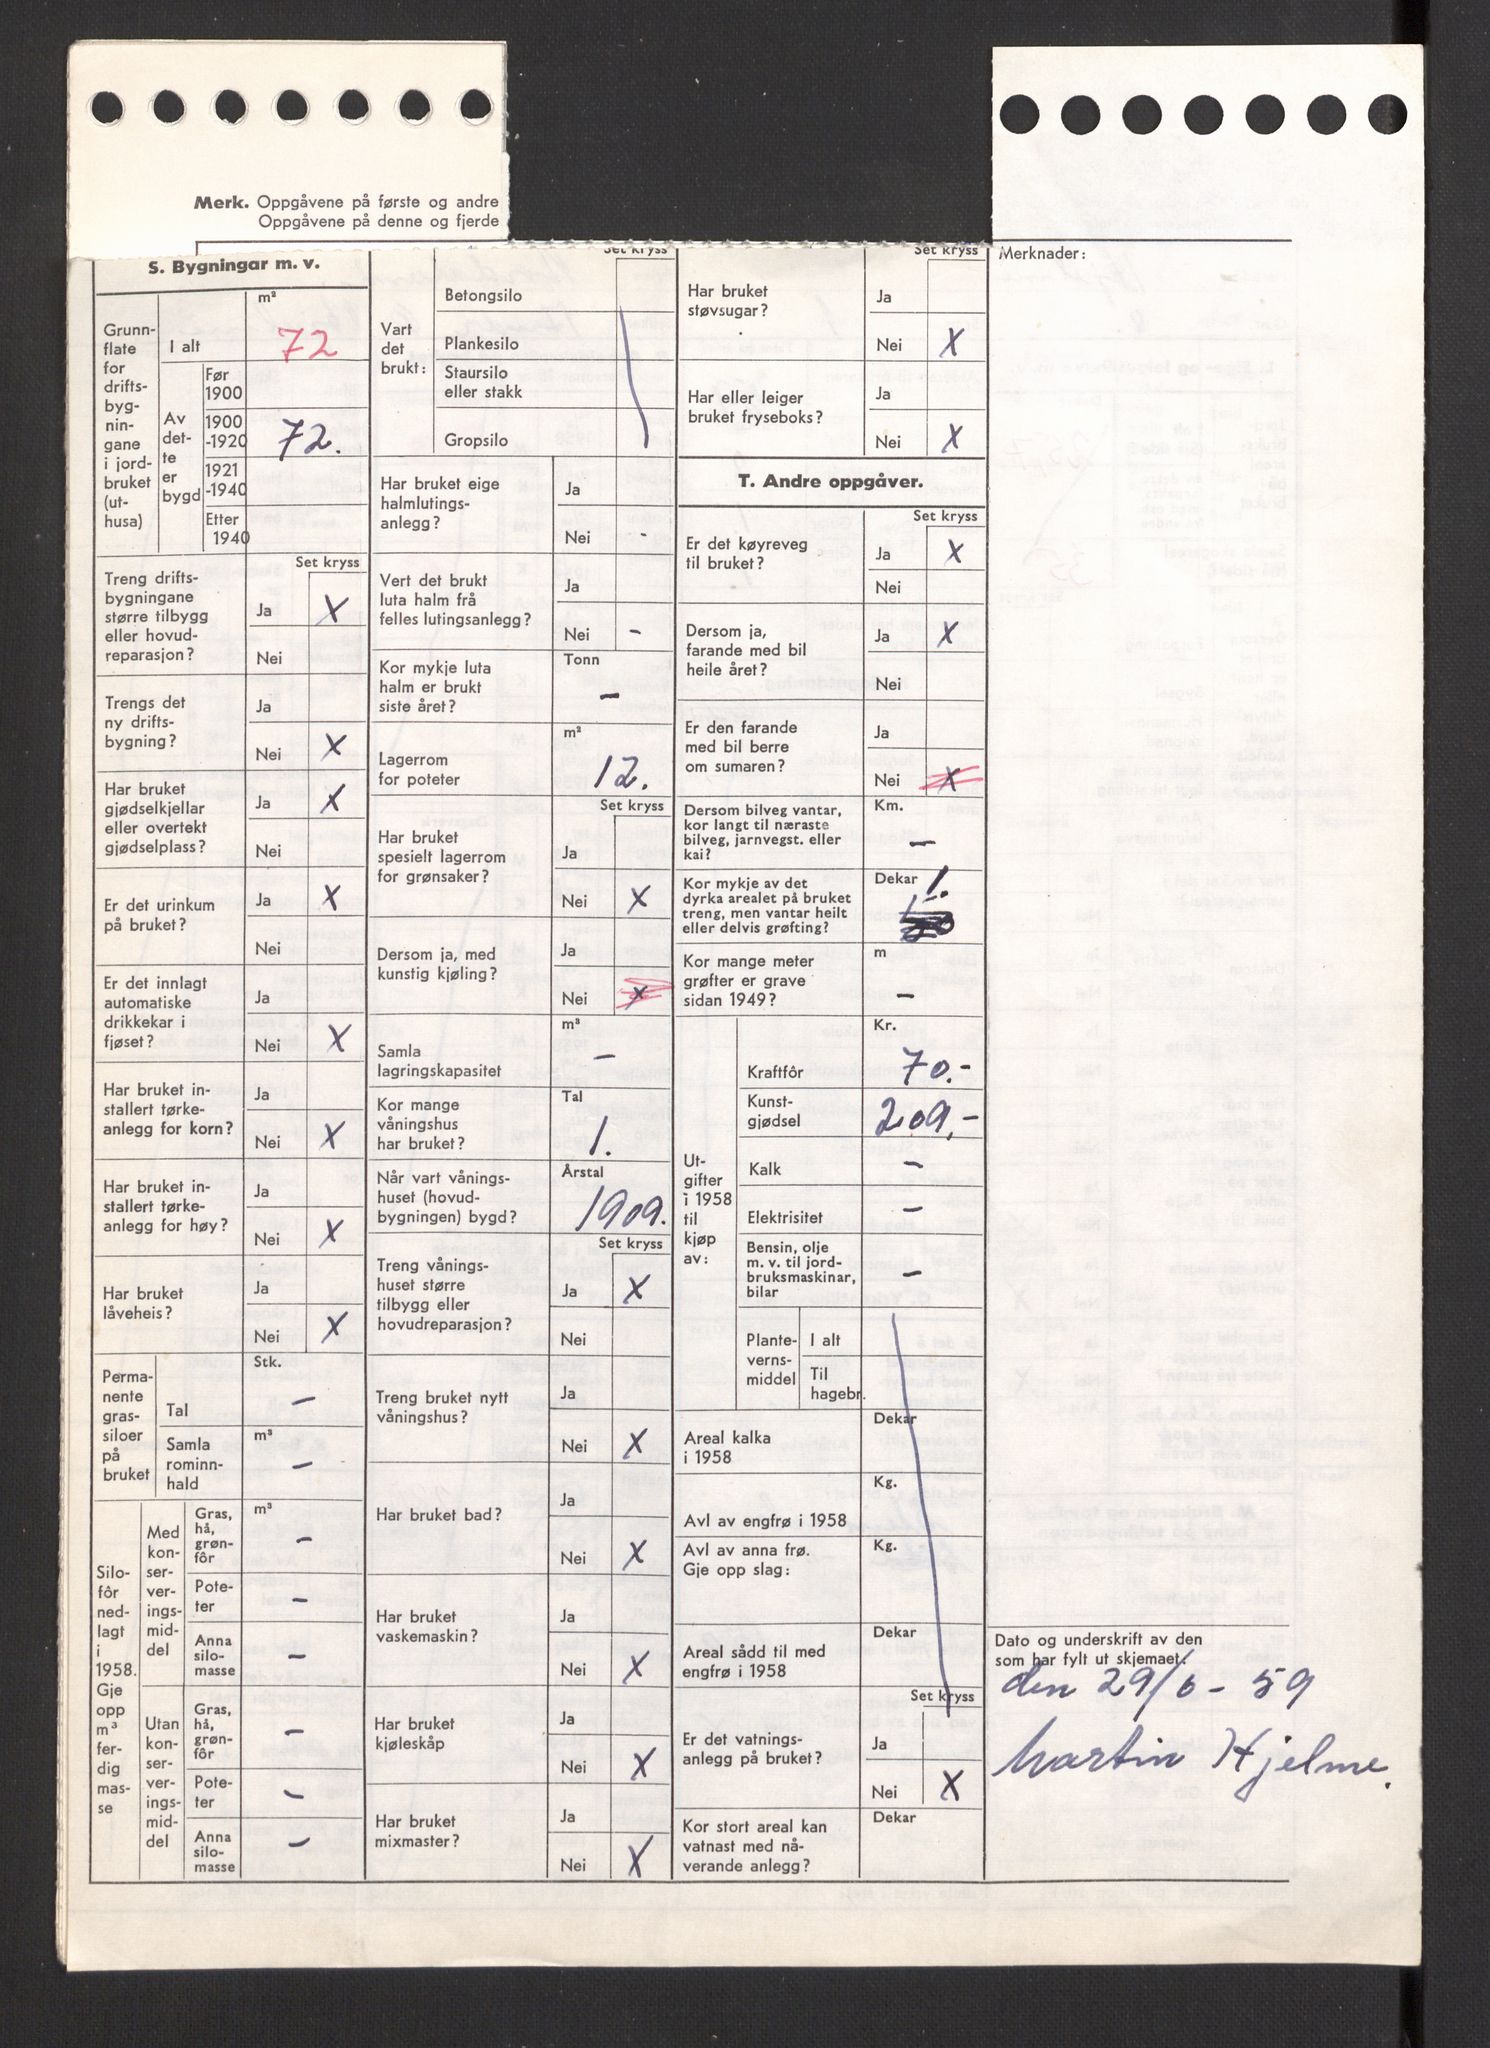 Merk. Oppgåvene på første og andre
Oppgåvene på denne og fjerde
S. Bygningar m. v.
m²
Grunn-
flate
for
drifts-
byg-
nin-
gane
i jord-
bruket
(ut-
husa)
I alt
72
Av
det-
te
er
bygd
Før
1900
1900
-1920
72.
1921
-1940
Etter
1940
Set kryss
Treng drifts-
bygningane
større tilbygg
eller hovud-
reparasjon?
Ja X
Nei
Trengs det
ny drifts-
bygning?
Ja
Nei X
Har bruket
gjødselkjellar
eller overtekt
gjødselplass?
Ja X
Nei
Er det urinkum
på bruket?
Ja X
Nei
Er det innlagt
automatiske
drikkekar i
fjøset?
Ja
Nei X
Har bruket in-
stallert tørke-
anlegg for korn?
Ja
Nei X
Har bruket in-
stallert tørke-
anlegg for høy?
Ja
Nei X
Har bruket
låveheis?
Ja
Nei X
Perma-
nente
gras-
siloer
på
bruket
Stk.
Tal –
m³
Samla
rominn-
hald –
Silo-
fôr
ned-
lagt
i
1958.
Gje
opp
m³
fer-
dig
mas-
se
Med
kon-
ser-
ver-
ings-
mid-
del
m³
Gras,
hå,
grøn-
fôr –
Pote-
ter –
Anna
silo-
masse –
Utan
kon-
ser-
ver-
ings-
mid-
del
Gras,
hå,
grøn-
fôr –
Pote-
ter –
Anna
silo-
masse –
Set kryss
Vart
det
brukt:
Betongsilo
Plankesilo
Staursilo
eller stakk
Gropsilo
Har bruket eige
halmlutings-
anlegg?
Ja
Nei -
Vert det brukt
luta halm frå
felles lutingsanlegg?
Ja
Nei –
Kor mykje luta
halm er brukt
siste året?
Tonn
–
Lagerrom
for poteter
m²
12.
Set kryss
Har bruket
spesielt lagerrom
for grønsaker?
Ja
Nei X
Dersom ja, med
kunstig kjøling?
Ja
Nei X
Samla
lagringskapasitet
m³
–
Kor mange
våningshus
har bruket?
Tal
1.
Når vart vånings-
huset (hovud-
bygningen) bygd?
Årstal
1909.
Set kryss
Treng vånings-
huset større
tilbygg eller
hovudreparasjon?
Ja X
Nei
Treng bruket nytt
våningshus?
Ja
Nei X
Har bruket bad?
Ja
Nei X
Har bruket
vaskemaskin?
Ja
Nei X
Har bruket
kjøleskåp
Ja
Nei X
Har bruket
mixmaster?
Ja
Nei X
Set kryss
Har bruket
støvsugar?
Ja
Nei X
Har eller leiger
bruket fryseboks?
Ja
Nei X
T. Andre oppgåver.
Set kryss
Er det køyreveg
til bruket?
Ja X
Nei
Dersom ja,
farande med bil
heile året?
Ja X
Nei
Er den farande
med bil berre
om sumaren?
Ja
Nei X
Dersom bilveg vantar,
kor langt til næraste
bilveg, jarnvegst. eller
kai?
Km.
–
Kor mykje av det
dyrka arealet på bruket
treng, men vantar heilt
eller delvis grøfting?
Dekar
1.
Kor mange meter
grøfter er grave
sidan 1949?
m
–
Ut-
gifter
i 1958
til
kjøp
av:
Kr.
Kraftfôr 70.-
Kunst-
gjødsel 209,-
Kalk –
Elektrisitet –
Bensin, olje
m. v. til jord-
bruksmaskinar,
bilar –
Plante-
verns-
middel
I alt
Til
hagebr.
Areal kalka
i 1958
Dekar
Avl av engfrø i 1958
Kg.
Avl av anna frø.
Gje opp slag:
Kg.
Areal sådd til med
engfrø i 1958
Dekar
Set kryss
Er det vatnings-
anlegg på bruket?
Ja
Nei X
Kor stort areal kan
vatnast med nå-
verande anlegg?
Dekar
Merknader:
Dato og underskrift av den
som har fylt ut skjemaet.
den 29/6 - 59
Martin Hjelme.